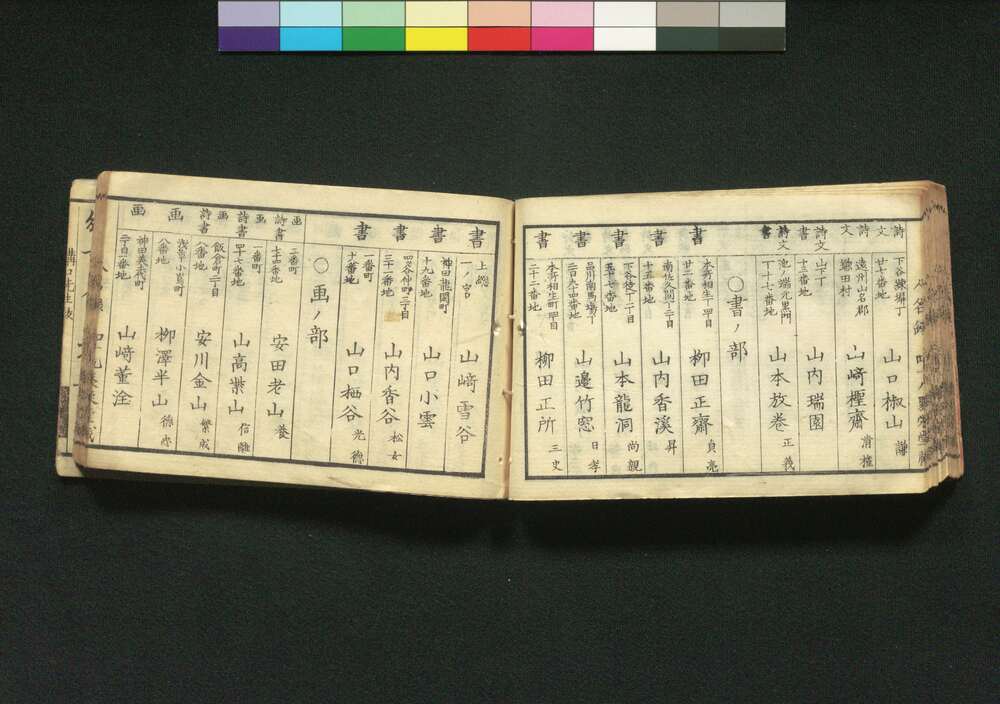 詩文
下谷練塀丁
廿十番地
山口椒山 謙
詩文
遠州山名郡
鎌田村
山﨑樫齋
詩文書
山下丁
十三番地
山内瑞園
詩文書
池ノ端元黒門
丁十七番地
山本放巻 正義
〇書ノ部
書
本所相生丁四丁目
廿二番地
柳田正齋 貞亮
書
南佐久間丁二丁目
十五番地
山内香溪 昇
書
下谷徒丁二丁目
五十七番地
山本龍洞 尚親
書
品川南馬場丁
三百九十四番地
山邊竹窓 日孝
書
本所相生町四丁目
二十二番地
柳田正所 三史
書
上總
一ノ宮
山﨑雪谷
書
神田龍閑町
十九番地
山口小雲
書
四ツ谷仲町三丁目
三十一番地
山内香谷 松女
書
一番町
十一番地
山口栖谷 光德
〇画ノ部
画詩書
二番町
七十四番地
安田老山 養
画詩書
一番町
四十七番地
山高紫山 信離
画詩書
飯倉町二丁目
八番地
安川金山 繁成
画
浅草小島町
八番地
柳澤半山
画
神田美土代町
二丁目一番地
山﨑董洤